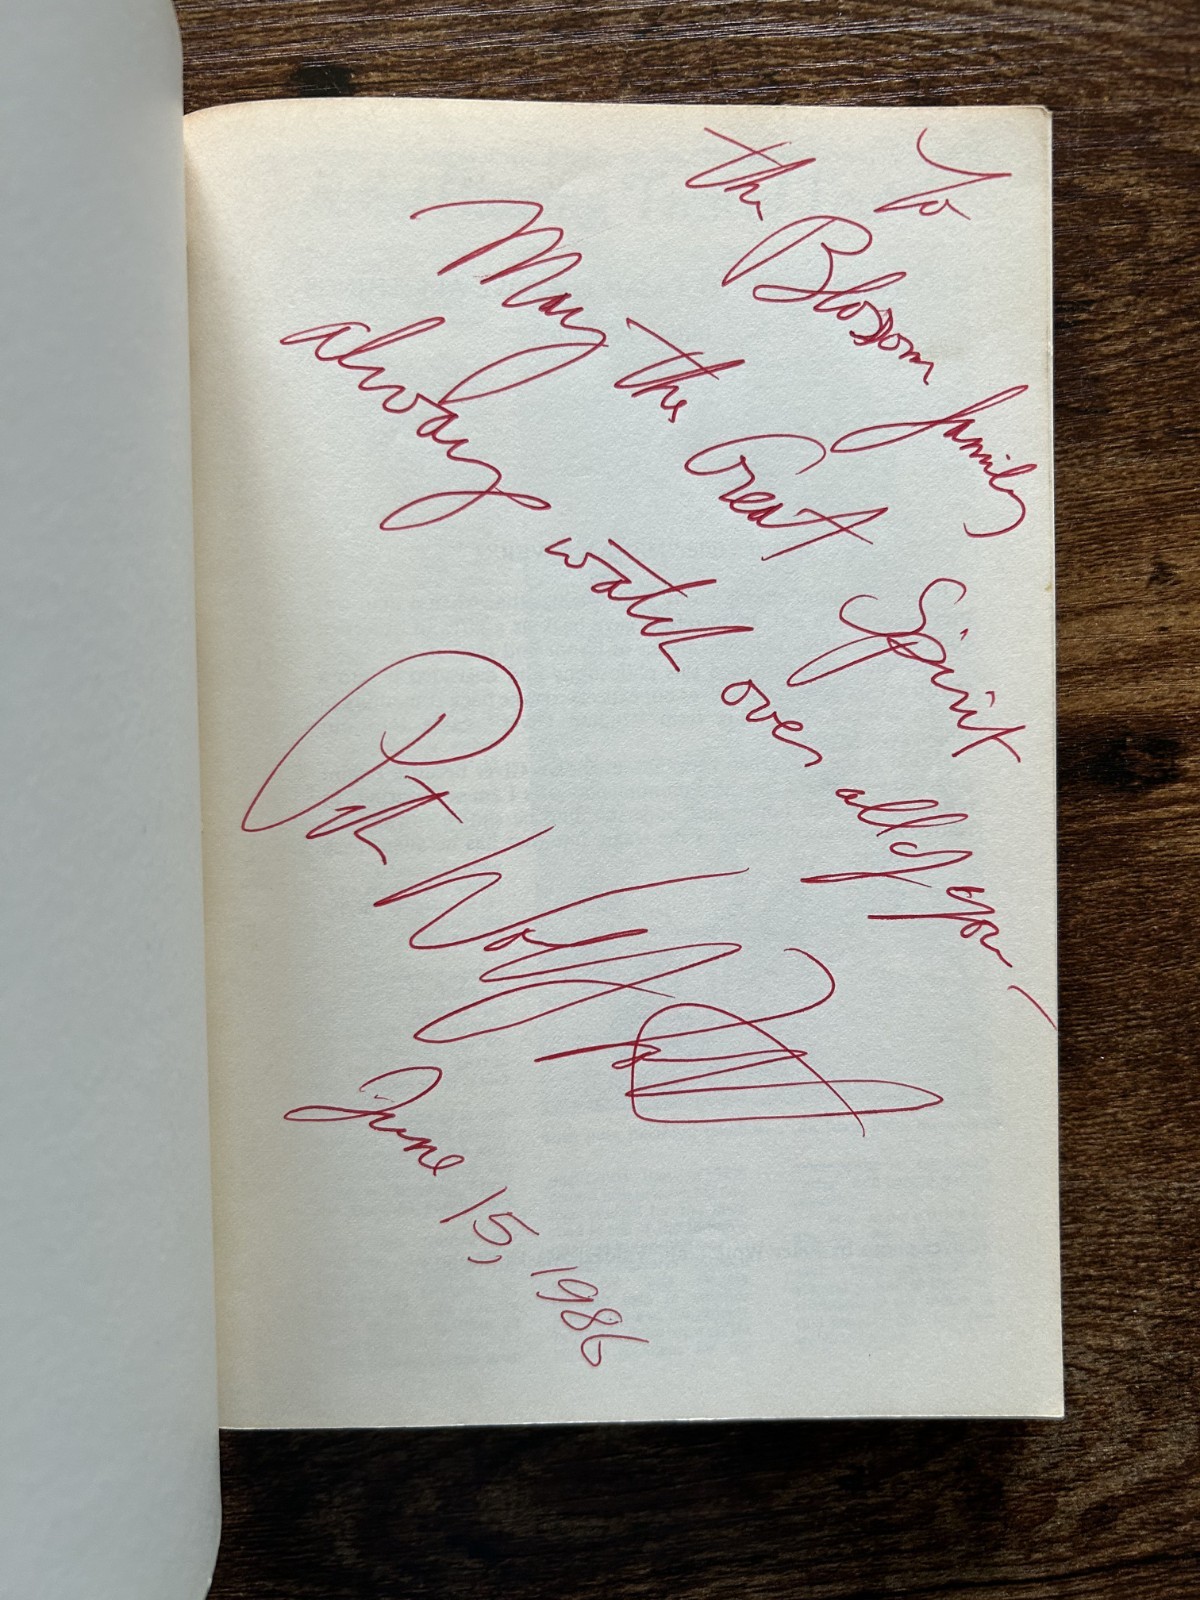 To
the Blossom family
May the Great Spirit
always watch over all of you –
Peter Wolf Toth
June 15, 1986